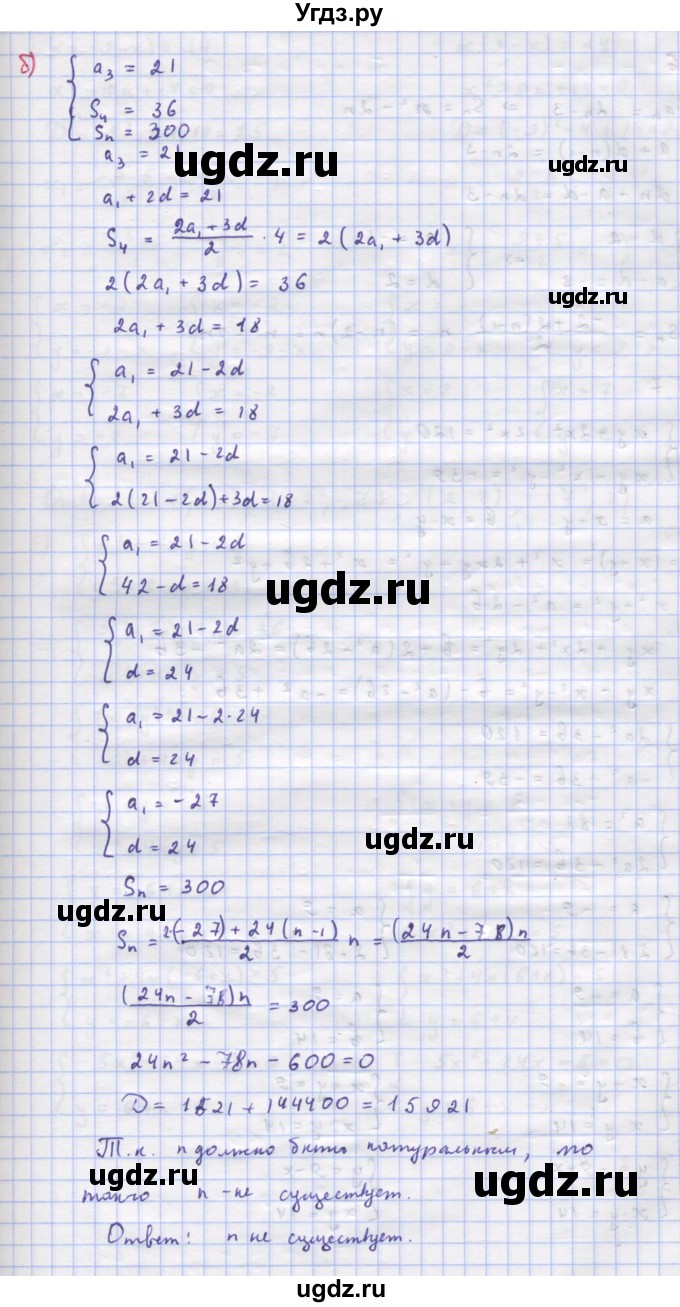 Угдз.ру
б) { a₃ = 21
S₄ = 36
Sₙ = 300
a₃ = 21
ugdz.ru
ugdz.ru
a₁ + 2d = 21
S₄ = (2a₁ + 3d)/2 · 4 = 2(2a₁ + 3d)
2(2a₁ + 3d) = 36
ugdz.ru
2a₁ + 3d = 18
{ a₁ = 21 - 2d
2a₁ + 3d = 18
{ a₁ = 21 - 2d
2(21 - 2d) + 3d = 18
{ a₁ = 21 - 2d
42 - d = 18
ugdz.ru
{ a₁ = 21 - 2d
d = 24
{ a₁ = 21 - 2·24
d = 24
{ a₁ = -27
d = 24
ugdz.ru
Sₙ = 300
ugdz.ru
Sₙ = (2·(-27) + 24(n-1))/2 n = ((24n - 78)n)/2
((24n - 78)n)/2 = 300
24n² - 78n - 600 = 0
D = 1521 + 144400 = 15921
Т.к. n должно быть натуральным, то
ugdz.ru
ugdz.ru
такого n - не существует.
Ответ: n не существует.
ugdz.ru